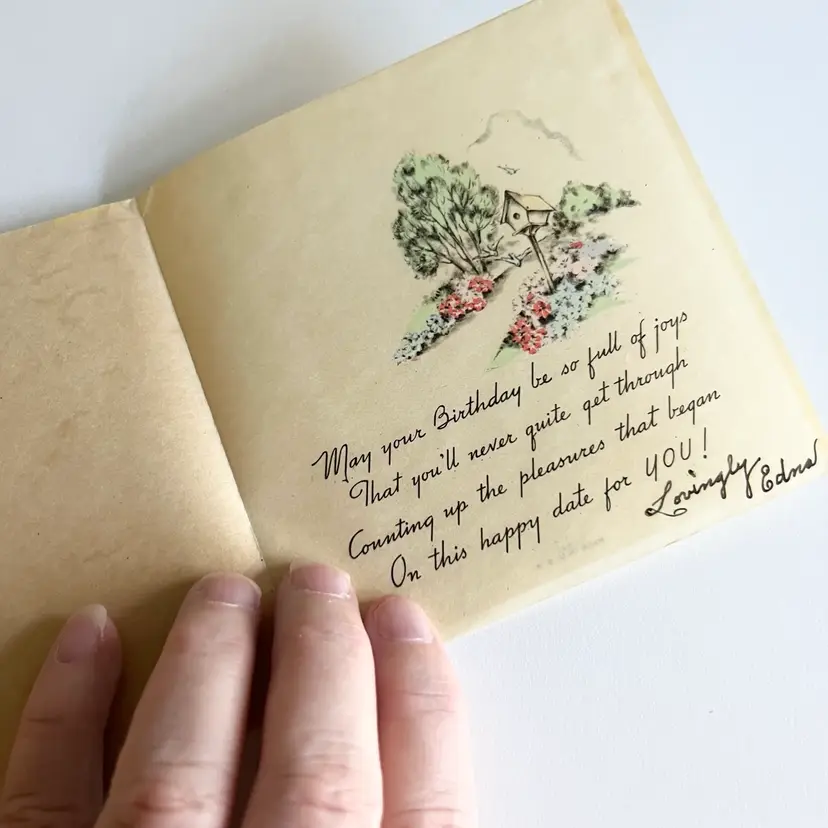 May your Birthday be so full of joys
That you'll never quite get through
Counting up the pleasures that began
On this happy date for YOU!
Lovingly Edna